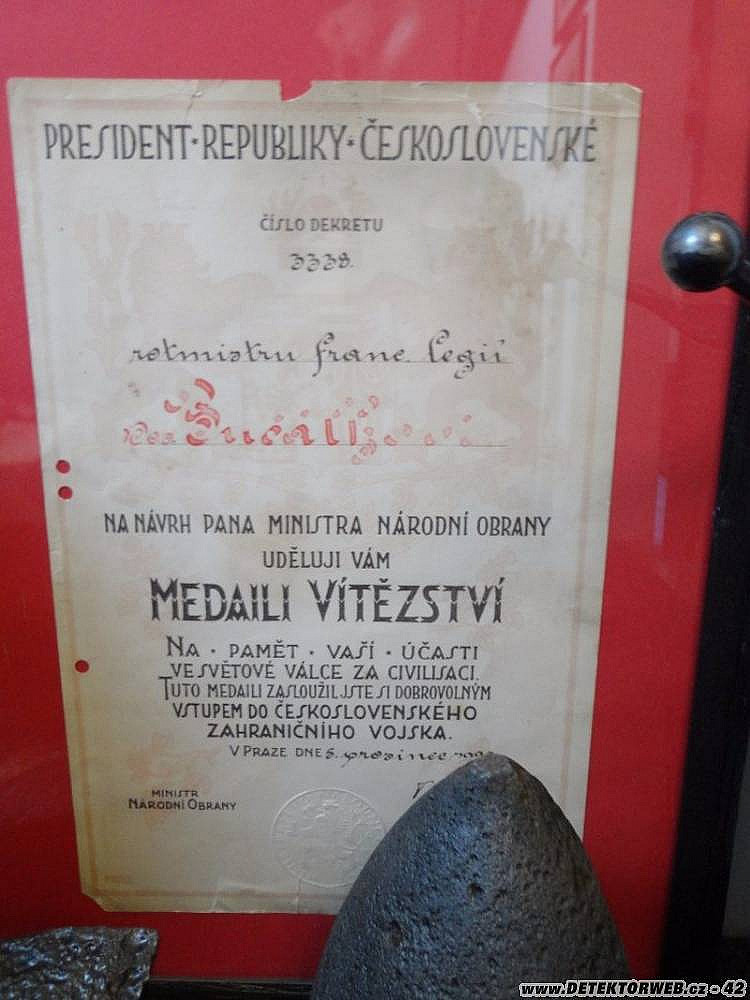 PRESIDENT·REPUBLIKY·ČESKOSLOVENSKÉ
ČÍSLO DEKRETU
3338.
rotmistru franc. legií
NA NÁVRH PANA MINISTRA NÁRODNÍ OBRANY
UDĚLUJI VÁM
MEDAILI VÍTĚZSTVÍ
NA · PAMĚT · VAŠÍ · ÚČASTI
VE SVĚTOVÉ VÁLCE ZA CIVILISACI.
TUTO MEDAILI ZASLOUŽIL JSTE SI DOBROVOLNÝM
VSTUPEM DO ČESKOSLOVENSKÉHO
ZAHRANIČNÍHO VOJSKA.
V PRAZE DNE 5. prosince
MINISTR
NÁRODNÍ OBRANY
www.DETEKTORWEB.cz - 42